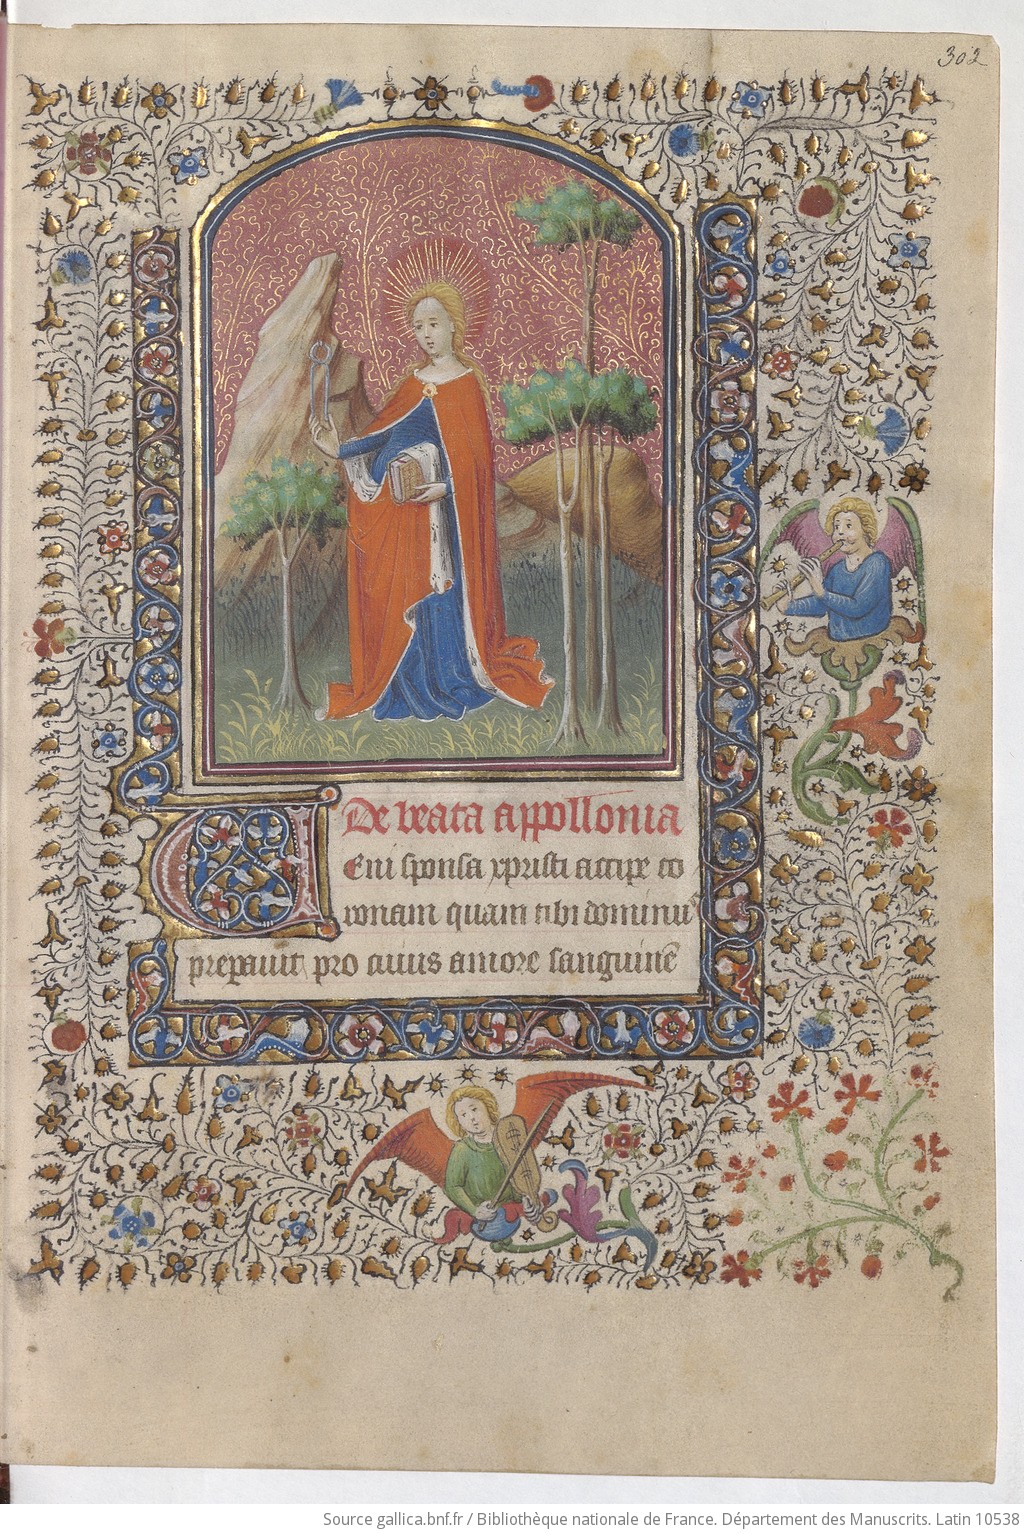 302
De beata appollonia
Veni sponsa xpristi accipe co
ronam quam tibi dominus
preparauit pro cuius amore sanguinē
Source gallica.bnf.fr / Bibliothèque nationale de France. Département des Manuscrits. Latin 10538